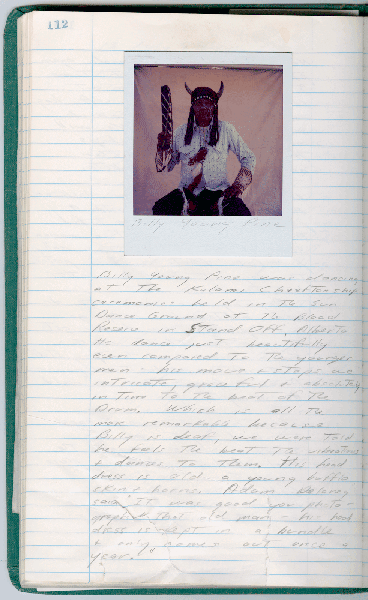 112
Billy Young Pine
Billy Young Pine was dancing
at The Chieftenship
ceremonies held in the Sun
Dance Ground at the Blood
Reserve in Stand Off, Alberta
He dance just beautifully
even compared to the younger
men - his move & steps are
intricate, graceful & absolutely
in Time to the beat of the
Drum. Which is all the
more remarkable because
Billy is deaf, we were told
he feels the beat The vibrations
& dances to Them, This head
dress is old a young buffalo
skin & horns. Adam Delaney
said "IT was good you photo-
graphed that old man - his head
dress is kept in a bundle
& only comes out once a
year."